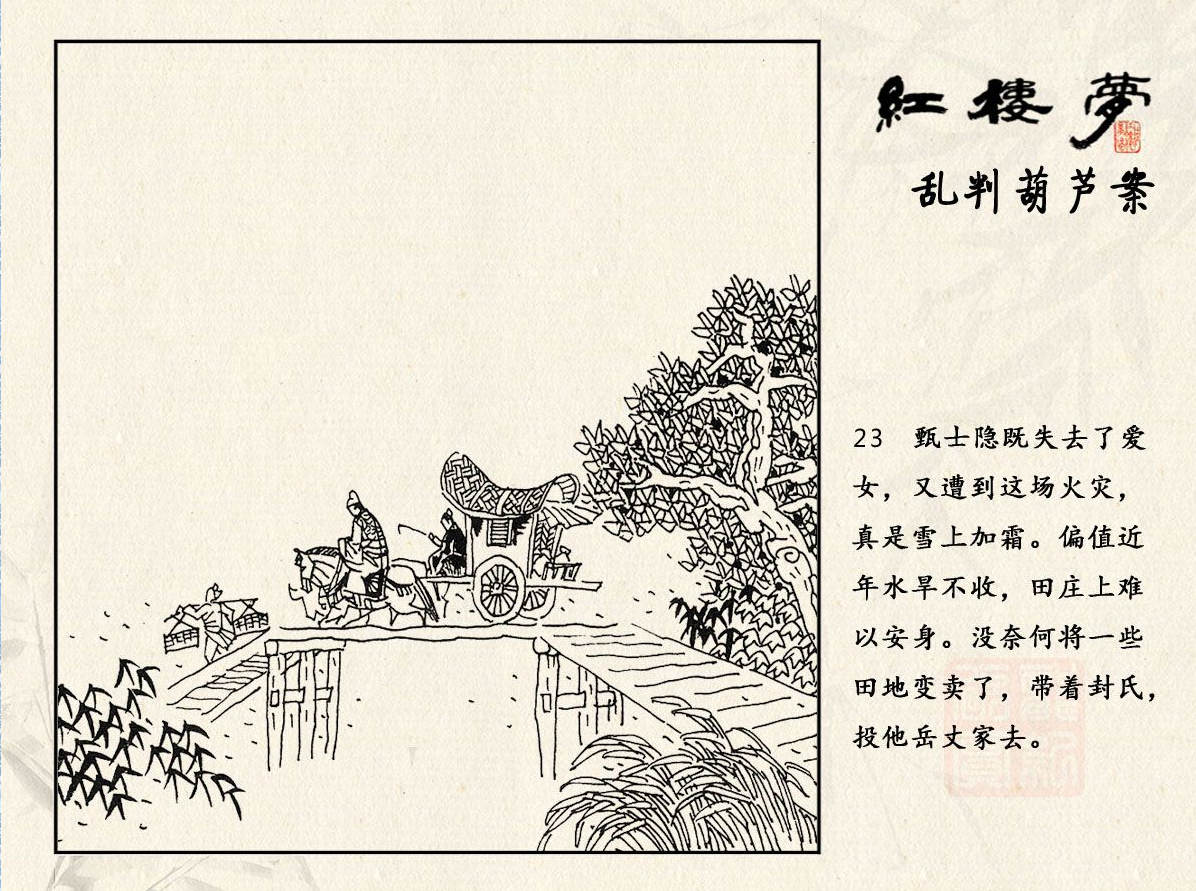 紅樓夢
乱判葫芦案
23 甄士隐既失去了爱
女，又遭到这场火灾，
真是雪上加霜。偏值近
年水旱不收，田庄上难
以安身。没奈何将一些
田地变卖了，带着封氏，
投他岳丈家去。